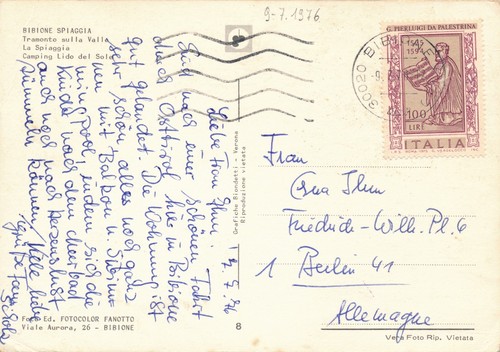 9-7.1976
BIBIONE SPIAGGIA
Tramonto sulla Valle
La Spiaggia
Camping Lido del Sole
G. PIERLUIGI DA PALESTRINA
1525
1594
100
LIRE
ITALIA
30020 BIBIONE
2.7.76
Liebe Frau Ihm,
Sind nach einer schönen Fahrt
durch Osttirol hier in Bibione
gut gelandet. Die Wohnung ist
sehr schön, alles noch ganz
neu mit Balkon u. Swim-
ming Pool, indem sich die
Kinder nach dem Meerbad
auch noch nach Herzenslust
tümmeln können. Viele liebe
Grüße Fam.
Grafiche Biondetti - Verona
Riproduzione vietata
Frau
Erna Ihm
Friedrich-Wilh. Pl. 6
1 Berlin 41
Allemagne
Foto Ed. FOTOCOLOR FANOTTO
Viale Aurora, 26 - BIBIONE
8
Vera Foto Rip. Vietata